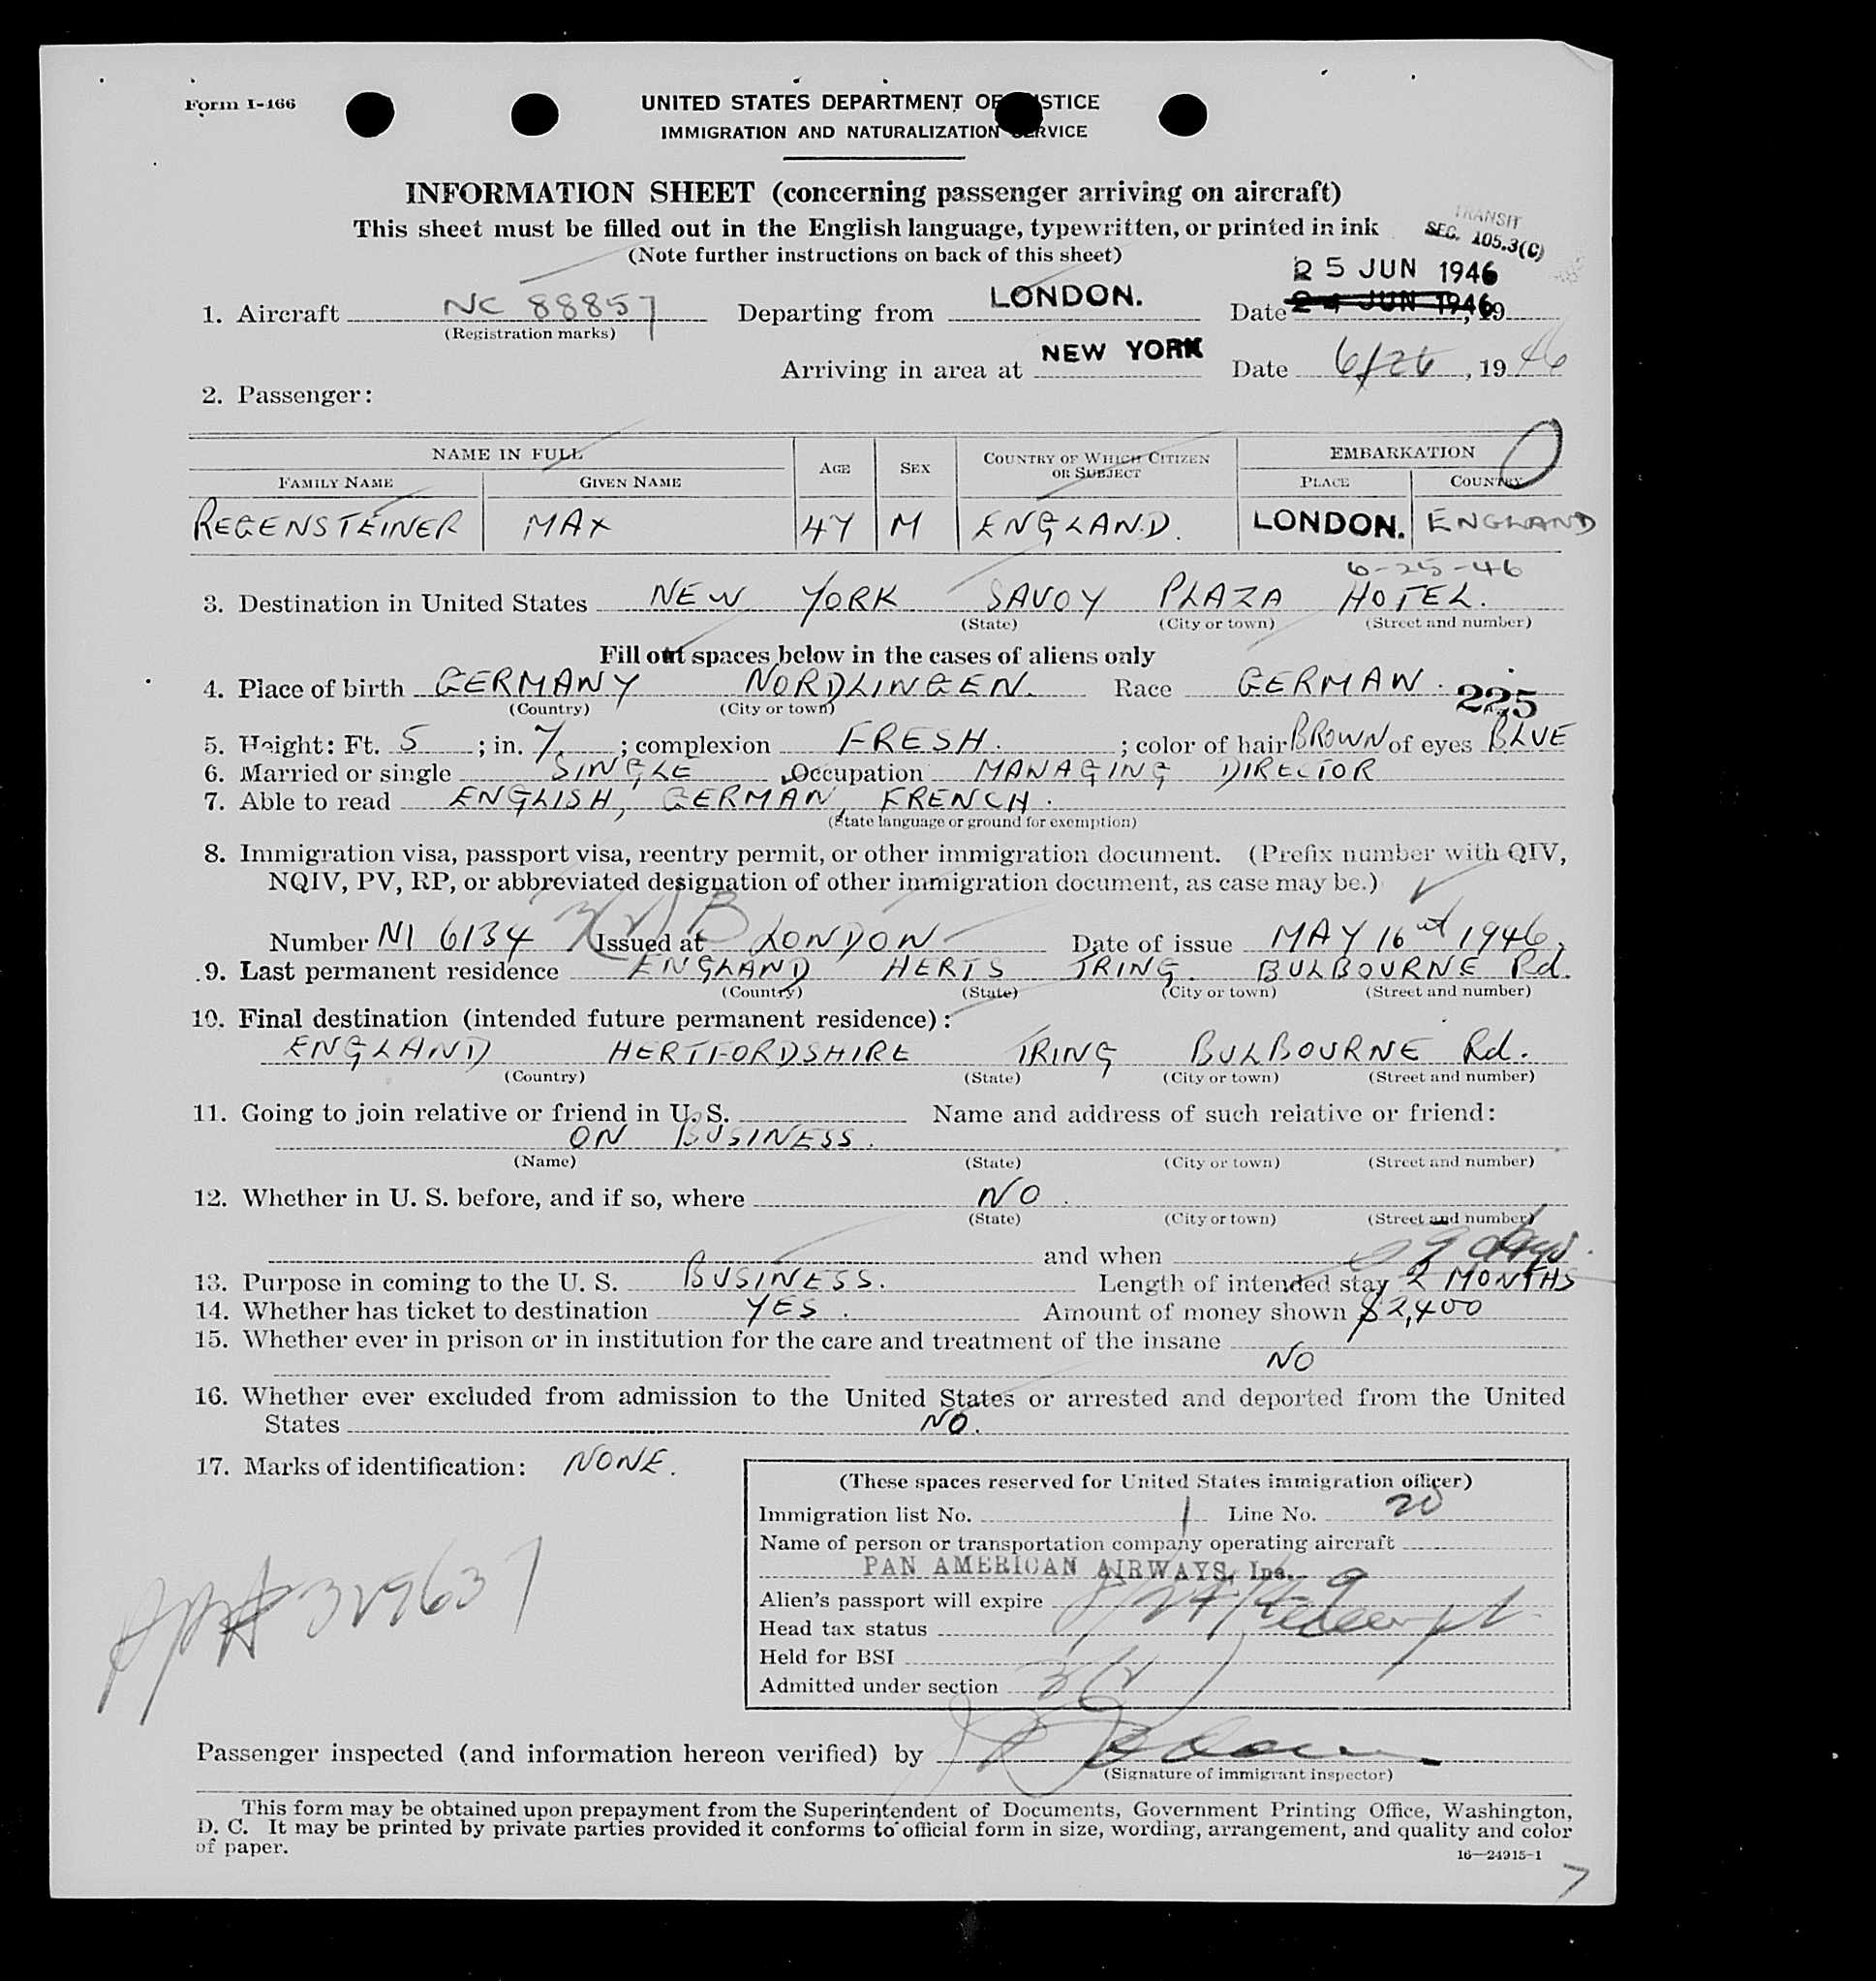 Form I-466
UNITED STATES DEPARTMENT OF JUSTICE
IMMIGRATION AND NATURALIZATION SERVICE
INFORMATION SHEET (concerning passenger arriving on aircraft)
This sheet must be filled out in the English language, typewritten, or printed in ink
TRANSIT
SEC. 105.3(C)
(Note further instructions on back of this sheet)
25 JUN 1946
1. Aircraft NC 88857 Departing from LONDON. Date 24 JUN 1946, 19
(Registration marks)
Arriving in area at NEW YORK Date 6/26, 1946
2. Passenger:
NAME IN FULL AGE SEX COUNTRY OF WHICH CITIZEN OR SUBJECT EMBARKATION
FAMILY NAME GIVEN NAME PLACE COUNTRY
REGENSTEINER MAX 47 M ENGLAND. LONDON. ENGLAND
6-25-46
3. Destination in United States NEW YORK SAVOY PLAZA HOTEL.
(State) (City or town) (Street and number)
Fill out spaces below in the cases of aliens only
4. Place of birth GERMANY NORDLINGEN. Race GERMAN. 225
(Country) (City or town)
5. Height: Ft. 5 ; in. 7. ; complexion FRESH. ; color of hair BROWN of eyes BLUE
6. Married or single SINGLE Occupation MANAGING DIRECTOR
7. Able to read ENGLISH, GERMAN, FRENCH.
(State language or ground for exemption)
8. Immigration visa, passport visa, reentry permit, or other immigration document. (Prefix number with QIV,
NQIV, PV, RP, or abbreviated designation of other immigration document, as case may be.)
3(2) B
Number NI 6134 Issued at LONDON Date of issue MAY 16 1946.
9. Last permanent residence ENGLAND HERTS TRING. BULBOURNE Rd.
(Country) (State) (City or town) (Street and number)
10. Final destination (intended future permanent residence):
ENGLAND HERTFORDSHIRE TRING BULBOURNE Rd.
(Country) (State) (City or town) (Street and number)
11. Going to join relative or friend in U. S. Name and address of such relative or friend:
ON BUSINESS.
(Name) (State) (City or town) (Street and number)
12. Whether in U. S. before, and if so, where NO.
(State) (City or town) (Street and number)
and when days
13. Purpose in coming to the U. S. BUSINESS. Length of intended stay 2 MONTHS
14. Whether has ticket to destination YES. Amount of money shown $2,400
15. Whether ever in prison or in institution for the care and treatment of the insane
NO
16. Whether ever excluded from admission to the United States or arrested and deported from the United
States NO.
17. Marks of identification: NONE.
(These spaces reserved for United States immigration officer)
Immigration list No. 1 Line No. 20
Name of person or transportation company operating aircraft
PAN AMERICAN AIRWAYS, Inc.
Alien's passport will expire
Head tax status
Held for BSI
Admitted under section 3(2)
329637
Passenger inspected (and information hereon verified) by
(Signature of immigrant inspector)
This form may be obtained upon prepayment from the Superintendent of Documents, Government Printing Office, Washington,
D. C. It may be printed by private parties provided it conforms to official form in size, wording, arrangement, and quality and color
of paper.
16—24915-1
7